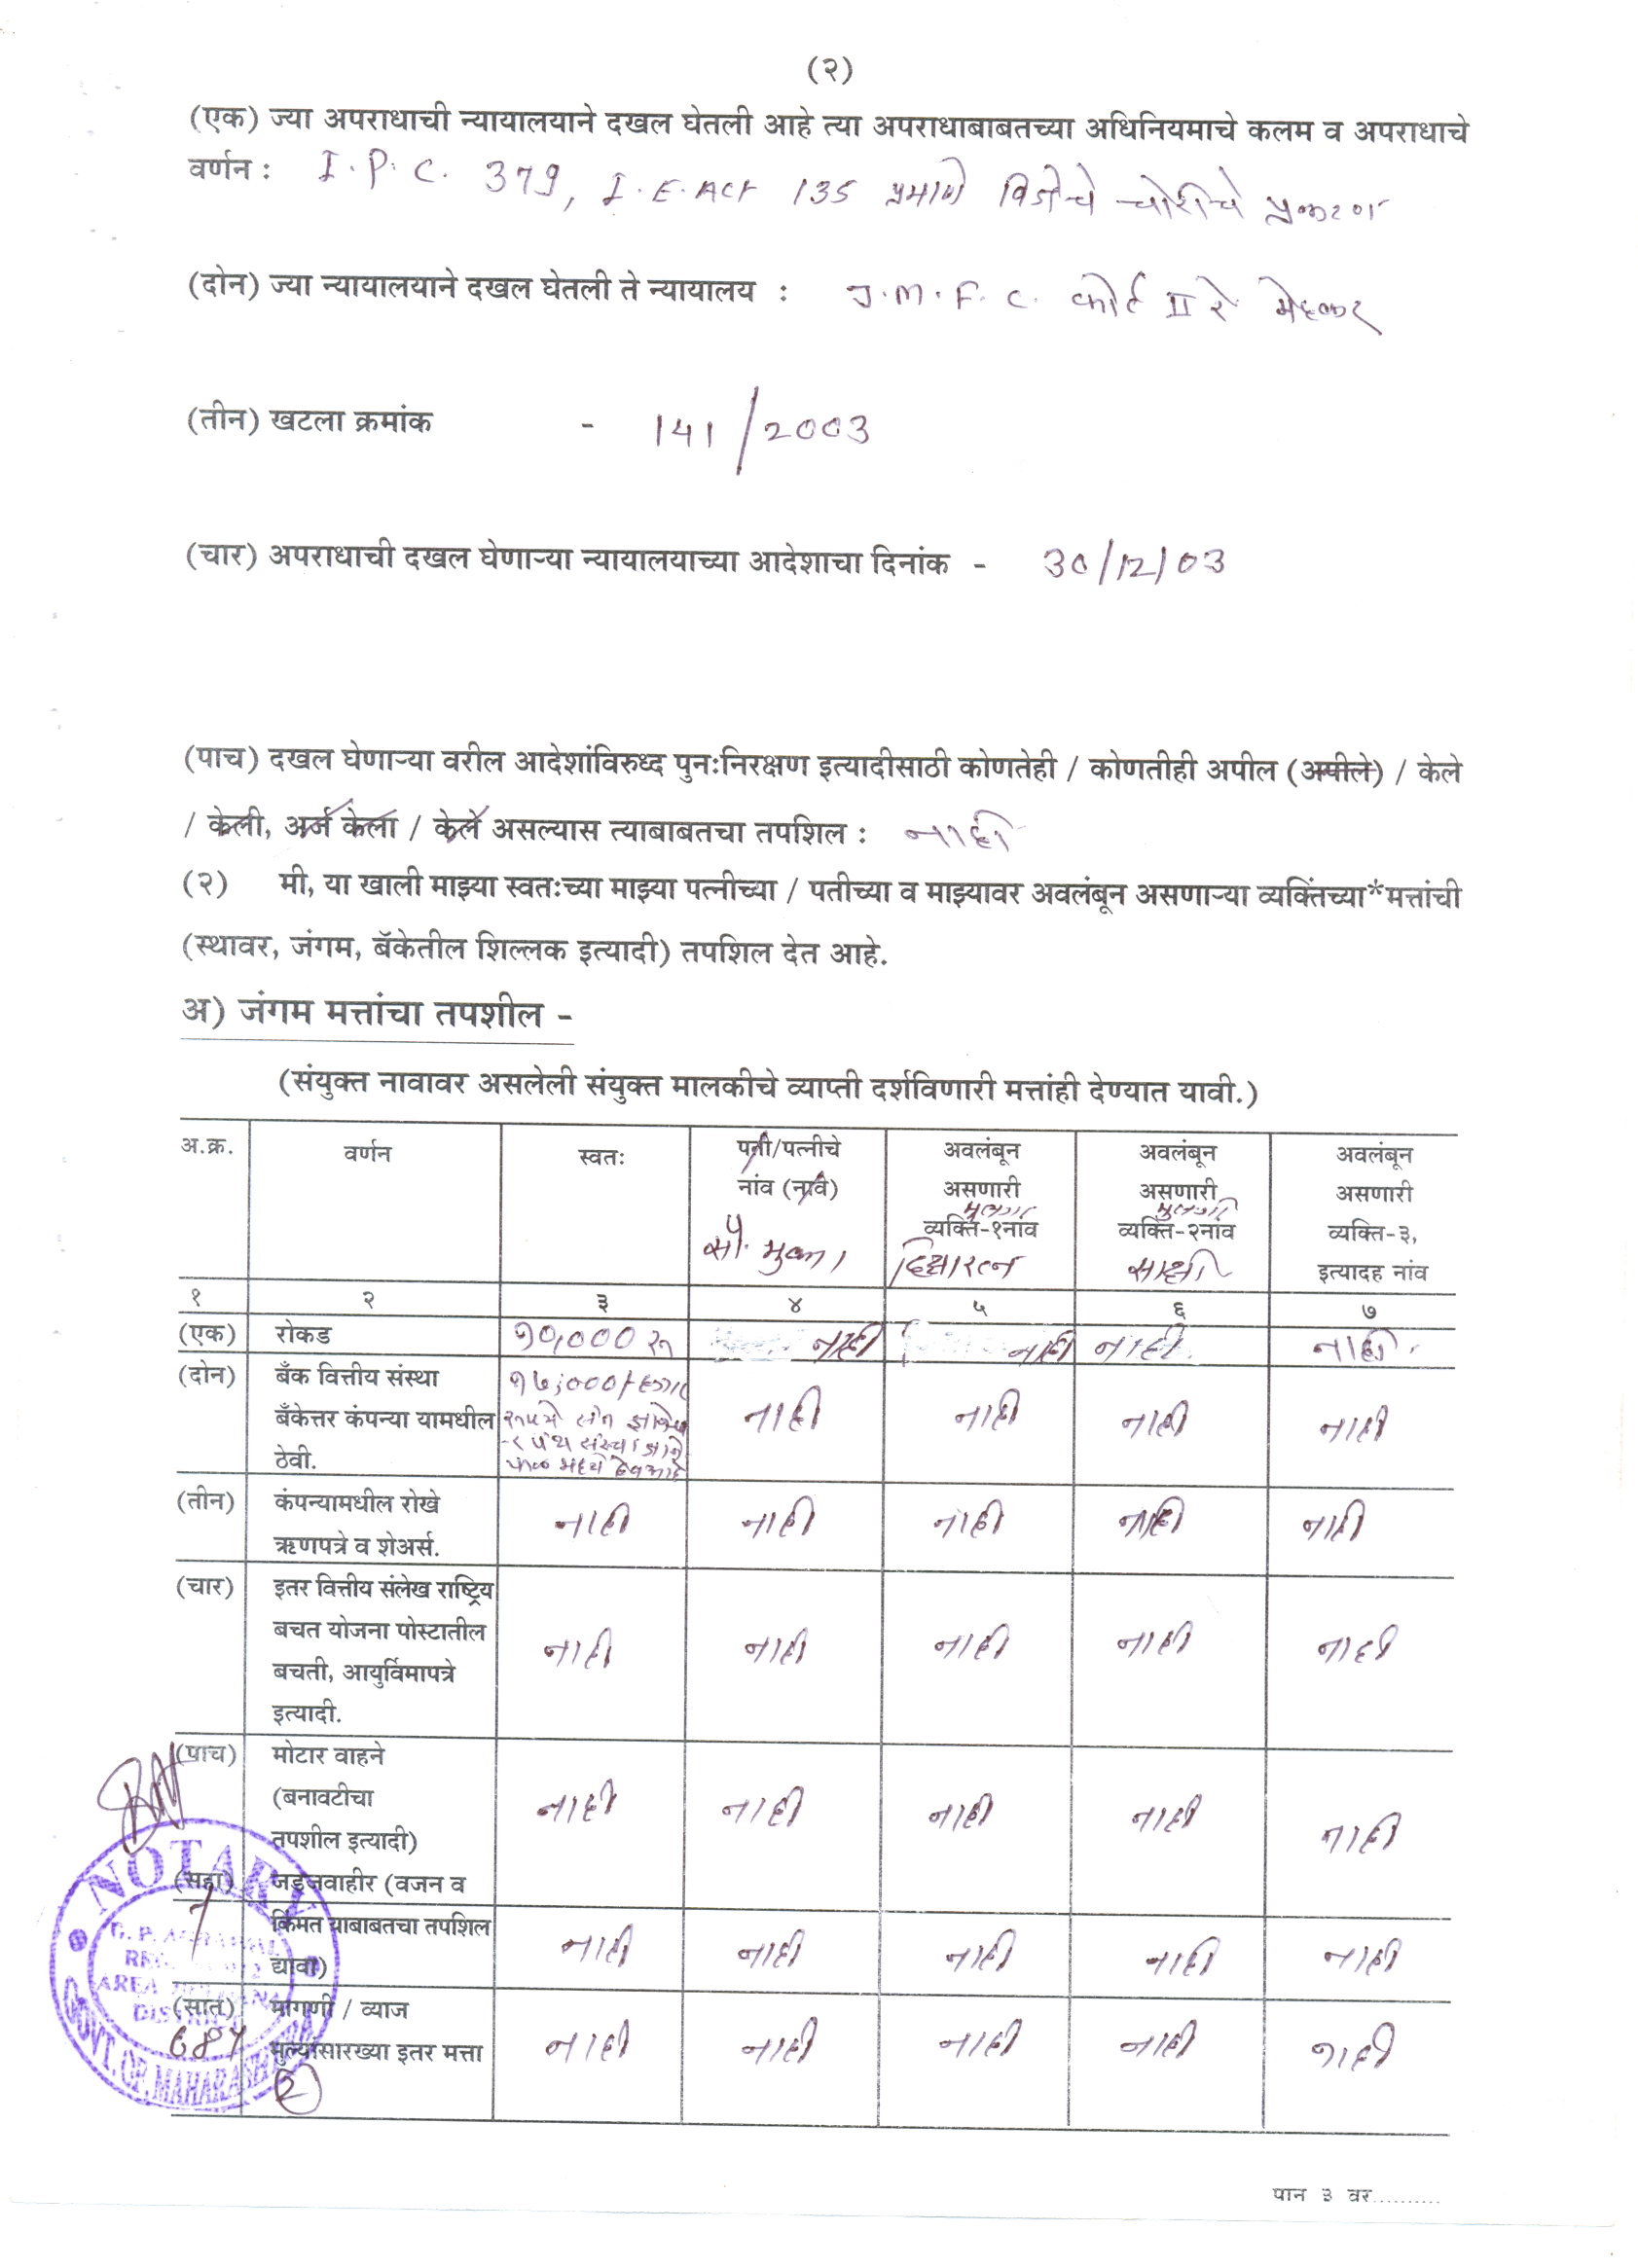 (२)
(एक) ज्या अपराधाची न्यायालयाने दखल घेतली आहे त्या अपराधाबाबतच्या अधिनियमाचे कलम व अपराधाचे
वर्णन : I.P.C. 379, I.E.ACT 135 प्रमाणे विजेचे चोरीचे प्रकरण
(दोन) ज्या न्यायालयाने दखल घेतली ते न्यायालय : J.M.F.C. कोर्ट II रे मेहकर
(तीन) खटला क्रमांक - 141/2003
(चार) अपराधाची दखल घेणाऱ्या न्यायालयाच्या आदेशाचा दिनांक - 30/12/03
(पाच) दखल घेणाऱ्या वरील आदेशांविरुध्द पुनःनिरक्षण इत्यादीसाठी कोणतेही / कोणतीही अपील (अपीले) / केले
/ केली, अर्ज केला / केले असल्यास त्याबाबतचा तपशिल : नाही
(२) मी, या खाली माझ्या स्वतःच्या माझ्या पत्नीच्या / पतीच्या व माझ्यावर अवलंबून असणाऱ्या व्यक्तिंच्या*मत्तांची
(स्थावर, जंगम, बॅकेतील शिल्लक इत्यादी) तपशिल देत आहे.
अ) जंगम मत्तांचा तपशील -
(संयुक्त नावावर असलेली संयुक्त मालकीचे व्याप्ती दर्शविणारी मत्तांही देण्यात यावी.)
अ.क्र. वर्णन स्वतः पती/पत्नीचे अवलंबून अवलंबून अवलंबून
नांव (नावे) असणारी असणारी असणारी
मुलगा मुलगी
व्यक्ति-१नांव व्यक्ति-२नांव व्यक्ति-३,
सौ. साक्षी इत्यादह नांव
१ २ ३ ४ ५ ६ ७
(एक) रोकड १०,००० रु नाही नाही नाही नाही
(दोन) बँक वित्तीय संस्था १५,०००/- हजार
बँकेत्तर कंपन्या यामधील रुपये नाही नाही नाही नाही
ठेवी. संस्था मध्ये
(तीन) कंपन्यामधील रोखे
ऋणपत्रे व शेअर्स. नाही नाही नाही नाही नाही
(चार) इतर वित्तीय संलेख राष्ट्रिय
बचत योजना पोस्टातील
बचती, आयुर्विमापत्रे नाही नाही नाही नाही नाही
इत्यादी.
(पाच) मोटार वाहने
(बनावटीचा नाही नाही नाही नाही नाही
तपशील इत्यादी)
(सहा) जडजवाहीर (वजन व
किंमत याबाबतचा तपशिल नाही नाही नाही नाही नाही
द्यावा)
(सात) मागणी / व्याज
मुल्यासारख्या इतर मत्ता नाही नाही नाही नाही नाही
NOTARY
GOVT. OF MAHARASHTRA
पान ३ वर..........